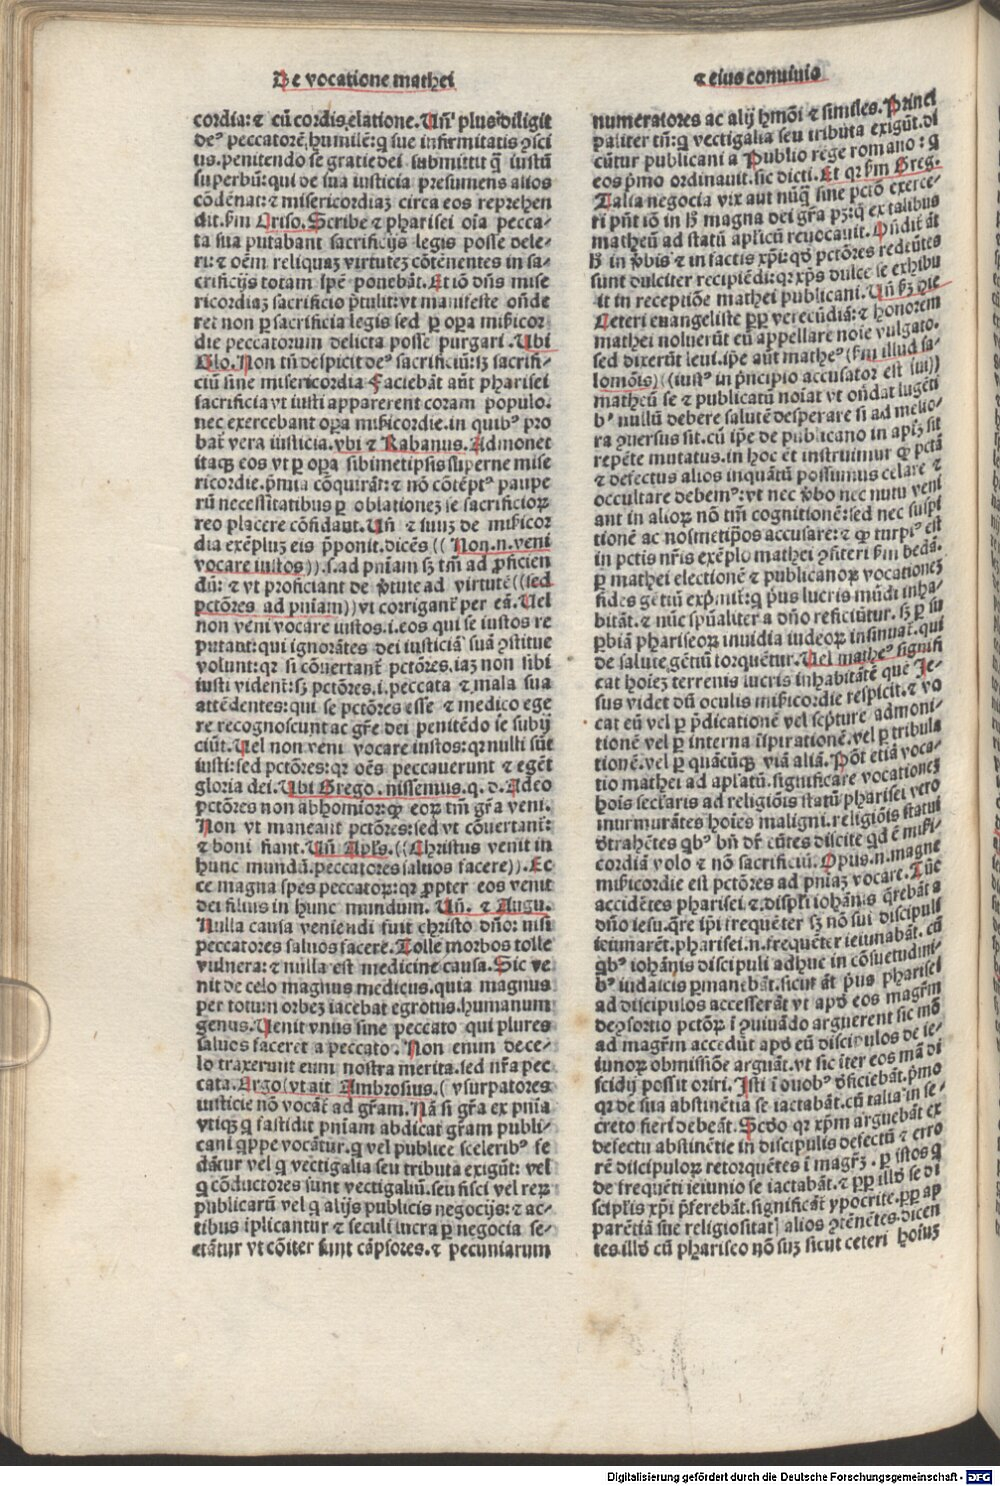 De vocatione mathei
⁊ eius conuiuio
cordia: ⁊ cū cordis elatione. Uñ plus diligit
deꝰ peccatorē humilē: ꝗ sue infirmitatis ꝯsci
us. penitendo se gratie dei submittit ꝗ̄ iustū
superbū: qui de sua iusticia presumens alios
cōdēnat: ⁊ misericordiaꝫ circa eos reprehen
dit. ẜm Criso. Scribe ⁊ pharisei oīa pecca-
ta sua putabant sacrificijs legis posse dele-
ri: ⁊ oēm reliquaꝫ virtuteꝫ cōtēnentes in sa-
crificijs totam spē ponebāt. Et iō dn̄s mise
ricordiaꝫ sacrificio p̄tulit: vt manifeste on̄de
ret non ꝑ sacrificia legis sed ꝑ oꝑa mīꝫicor
die peccatorum delicta posse purgari. Ubi
Glo. Non tn̄ despicit deꝰ sacrificiū: sꝫ sacrifi-
ciū sine misericordia Faciebāt aūt pharisei
sacrificia vt iusti apparerent coram populo.
nec exercebant oꝑa mīꝫicordie. in quibꝰ pro
bat̄ vera iusticia. vbi ⁊ Rabanus. Admonet
itaqꝫ eos vt ꝑ oꝑa sibimetipsis superne mise
ricordie. p̄mia cōquirāt: ⁊ nō cōtēptꝭ paupe
rū necessitatibus ꝑ oblationeꝫ se sacrificioꝝ
reo placere cōfidant. Uñ ⁊ suuꝫ de mīꝫicor
dia exēpluꝫ eis p̄ponit. dicēs ((Non .n. veni
vocare iustos)). s. ad pn̄iam sꝫ tm̄ ad ꝓficien
dū: ⁊ vt proficiant de v̓tute ad virtutē ((sed
pctōres ad pn̄iam)) vt corrigant̄ per eā. Uel
non veni vocare iustos. i. eos qui se iustos re
putant: qui ignorātes dei iusticiā suā ꝯstitue
volunt: qꝛ si cōuertant̄ pctōres. iaꝫ non sibi
iusti vident̄: sꝫ pctōres. i. peccata ⁊ mala sua
attēdentes: qui se pctōres esse ⁊ medico ege
re recognoscunt ac gr̄e dei penitēdo se subij
ciūt. Uel non veni vocare iustos: qꝛ nulli sūt
iusti: sed pctōres: qꝛ oēs peccauerunt ⁊ egēt
gloria dei. Ubi Grego. nissemus. q. d. Adeo
pctōres non abhomior: ꝙ eoꝝ tm̄ gr̄a veni.
Non vt maneant pctōres: sed vt cōuertant̄:
⁊ boni fiant. Uñ Apl̓s. ((Christus venit in
hunc mundū. peccatores saluos facere)). Ec
ce magna spes peccatoꝝ: qꝛ ꝓpter eos venit
dei filius in hunc mundum. Uñ. ⁊ Augu.
Nulla causa veniendi fuit christo dn̄o: nisi
peccatores saluos facere. Tolle morbos tolle
vulnera: ⁊ nulla est medicine causa. Sic ve
nit de celo magnus medicus. quia magnus
per totum orbeꝫ iacebat egrotus. humanum
genus. Uenit vnus sine peccato qui plures
saluos faceret a peccato. Non enim de ce-
lo traxerunt eum nostra merita. sed nr̄a pec
cata. Ergo (vt ait Ambrosius.) vsurpatores
iusticie nō vocāt̄ ad gr̄am. Nā si gr̄a ex pn̄ia
vtiqꝫ ꝗ fastidit pn̄iam abdicat gr̄am publi-
cani qͥppe vocātur. ꝗ vel publice sceleribꝰ fe
dātur vel ꝗ vectigalia seu tributa exigūt: vel
ꝗ cōductores sunt vectigaliū. seu fisci vel reꝝ
publicarū vel ꝗ alijs publicis negocijs: ⁊ ac-
tibus īplicantur ⁊ seculi lucra ꝑ negocia se-
ctātur vt cōiter sunt cāpsores. ⁊ pecuniarum
numeratores ac alij hmōi ⁊ similes. Princi
paliter tn̄: ꝗ vectigalia seu tributa exigūt. di
cūtur publicani a Publio rege romano: ꝗ
eos p̄mo ordinauit. sic dicti. Et qꝛ ẜm Greg.
Talia negocia vix aut nūqͣ̄ sine pctō exerce-
ri pn̄t iō in hͦ magna dei gr̄a pꝫ: ꝗ ex talibus
matheū ad statū apl̓icū reuocauit. On̄dit̄ āt
hͦ in v̓bis ⁊ in factis xp̄i: ꝙ pctōres redeūtes
sunt dulciter recipiēdi: qꝛ xp̄s dulce se exhibu
it in receptiōe mathei publicani. Uñ ẜꝫ Hie
Ceteri euangeliste ꝓpꝑ verecūdiā: ⁊ honorem
mathei noluerūt eū appellare noīe vulgato.
sed dixerūt leui. ip̄e aūt matheꝰ (ẜm illud sa-
lomōis) ((iustꝰ in p̄ncipio accusator est sui))
matheū se ⁊ publicatū noīat vt on̄dat lugēti
bꝰ nullū debere salutē desperare si ad melio-
ra ꝯuersus sit. cū ip̄e de publicano in apl̓ꝫ sit
repēte mutatus. in hoc et instruimur ꝙ pctā
⁊ defectus alios inquātū possumus celare ⁊
occultare debemꝰ: vt nec v̓bo nec nutu veni
ant in alioꝝ nō tm̄ cognitionē: sed nec suspi
tionē ac nosmetip̄os accusare: ⁊ ꝙ turpiꝰ est
in pctis nr̄is exēplo mathei ꝯfiteri ẜm bedā.
ꝑ mathei electionē ⁊ publicanoꝝ vocationeꝫ
fides gētiū exp̄mit̄: ꝗ pͥus lucris mūdi inha-
bitāt. ⁊ nūc spūaliter a dn̄o reficiūtur. sꝫ ꝑ su
ꝑbiā phariseoꝝ inuidia iudeoꝝ insinuat̄. qui
de salute gētiū torquētur. Uel matheꝰ signifi
cat hoieꝫ terrenis lucris inhabitātē quē Je-
sus videt dū oculis mīꝫicordie respicit. ⁊ vo
cat eū vel ꝑ p̄dicationē vel sc̄pture admoni-
tionē vel ꝑ interna īspirationē. vel ꝑ tribula
tionē. vel ꝑ quācūqꝫ viā aliā. Pōt etiā voca-
tio mathei ad apl̓atū. significare vocationeꝫ
hoīs secl̓aris ad religiōis statū pharisei vero
murmurātes hoīes maligni. religiōis statui
dꝛ̄ahētes qͥbꝰ bn̄ dꝛ̄ eūtes discite qͥd ē mīꝫi-
cordiā volo ⁊ nō sacrificiū. Opus .n. magne
mīꝫicordie est pctōres ad pn̄iaꝫ vocare. Tūc
accidētes pharisei ⁊ discip̄li iohānis q̄rebāt a
dn̄o iesu. qͣre ip̄i frequēter sꝫ nō sui discipuli
ieiunarēt. pharisei .n. frequēter ieiunabāt. cū
qͥbꝰ iohānis discipuli adhuc in cōsuetudini-
bꝰ iudaicis ꝑmanebāt. sicut āt pͥus pharisei
ad discipulos accesserāt vt apud eos magr̄m
de ꝯsortio pctōꝝ ī ꝯuiuādo arguerent sic mō
ad magr̄m accedūt apud eū discipulos de ie-
iunioꝝ obmissiōe arguāt. vt sic īter eos mā di
scidij possit oriri. Isti ī duobꝰ deficiebāt. p̄mo
qꝛ de sua abstinētia se iactabāt. cū talia in se-
creto fieri debeāt. Scd̓o qꝛ xp̄m arguebāt ex
defectu abstinētie in discipulis defectū ⁊ erro
rē discipuloꝝ retorquētes ī magr̄ꝫ. ꝑ istos ꝗ
de frequēti ieiunio se iactabāt. ⁊ ꝓpꝑ illd̓ se di
scip̄lis xp̄i p̄ferebāt. significāt̄ ypocrite. ꝓpꝑ ap
parētiā sue religiositatꝭ alios ꝯtēnētes. dicen
tes. illd̓ cū phariseo nō suꝫ sicut ceteri hoiuꝫ
Digitalisierung gefördert durch die Deutsche Forschungsgemeinschaft - DFG